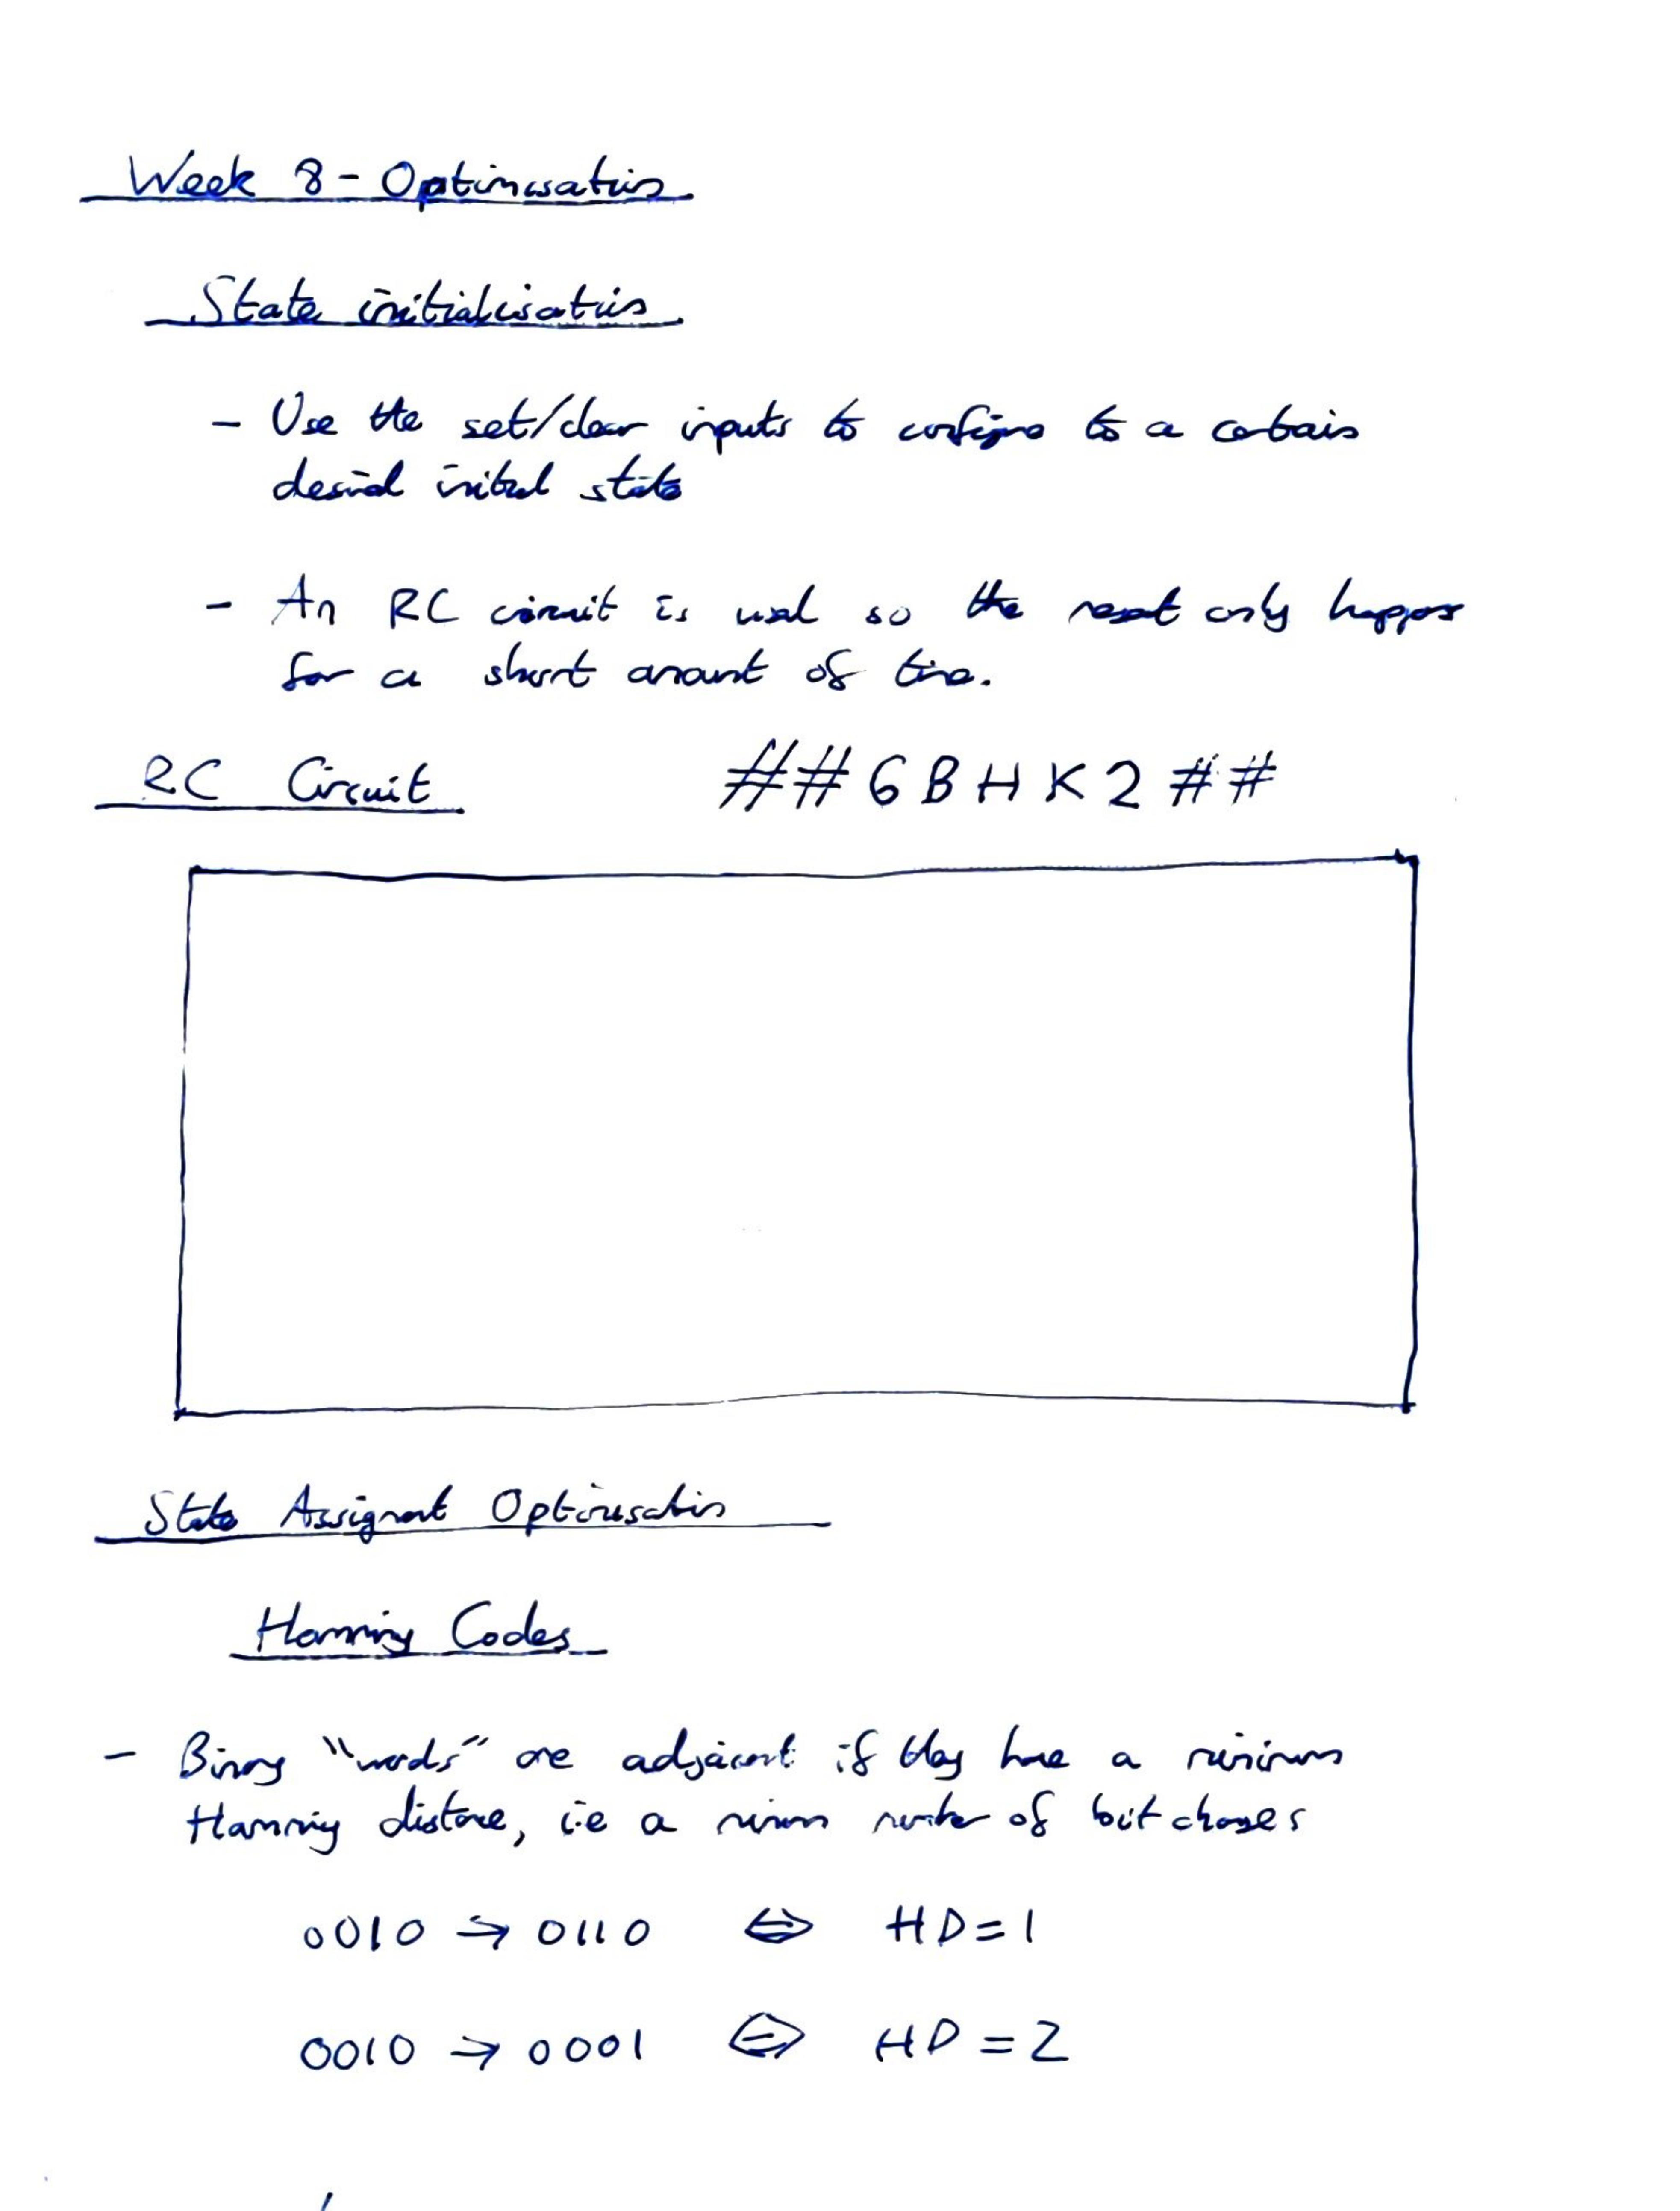 Week 8 - Optimisation
State initialisation
- Use the set/clear inputs to configure to a certain
desired initial state
- An RC circuit is used so the reset only happens
for a short amount of time.
RC Circuit ##6BHK2##
State Assignment Optimisation
Hamming Codes
- Binary "words" are adjacent if they have a minimum
Hamming distance, i.e a minimum number of bit changes
0010 → 0110 ⇔ HD=1
0010 → 0001 ⇔ HD=2